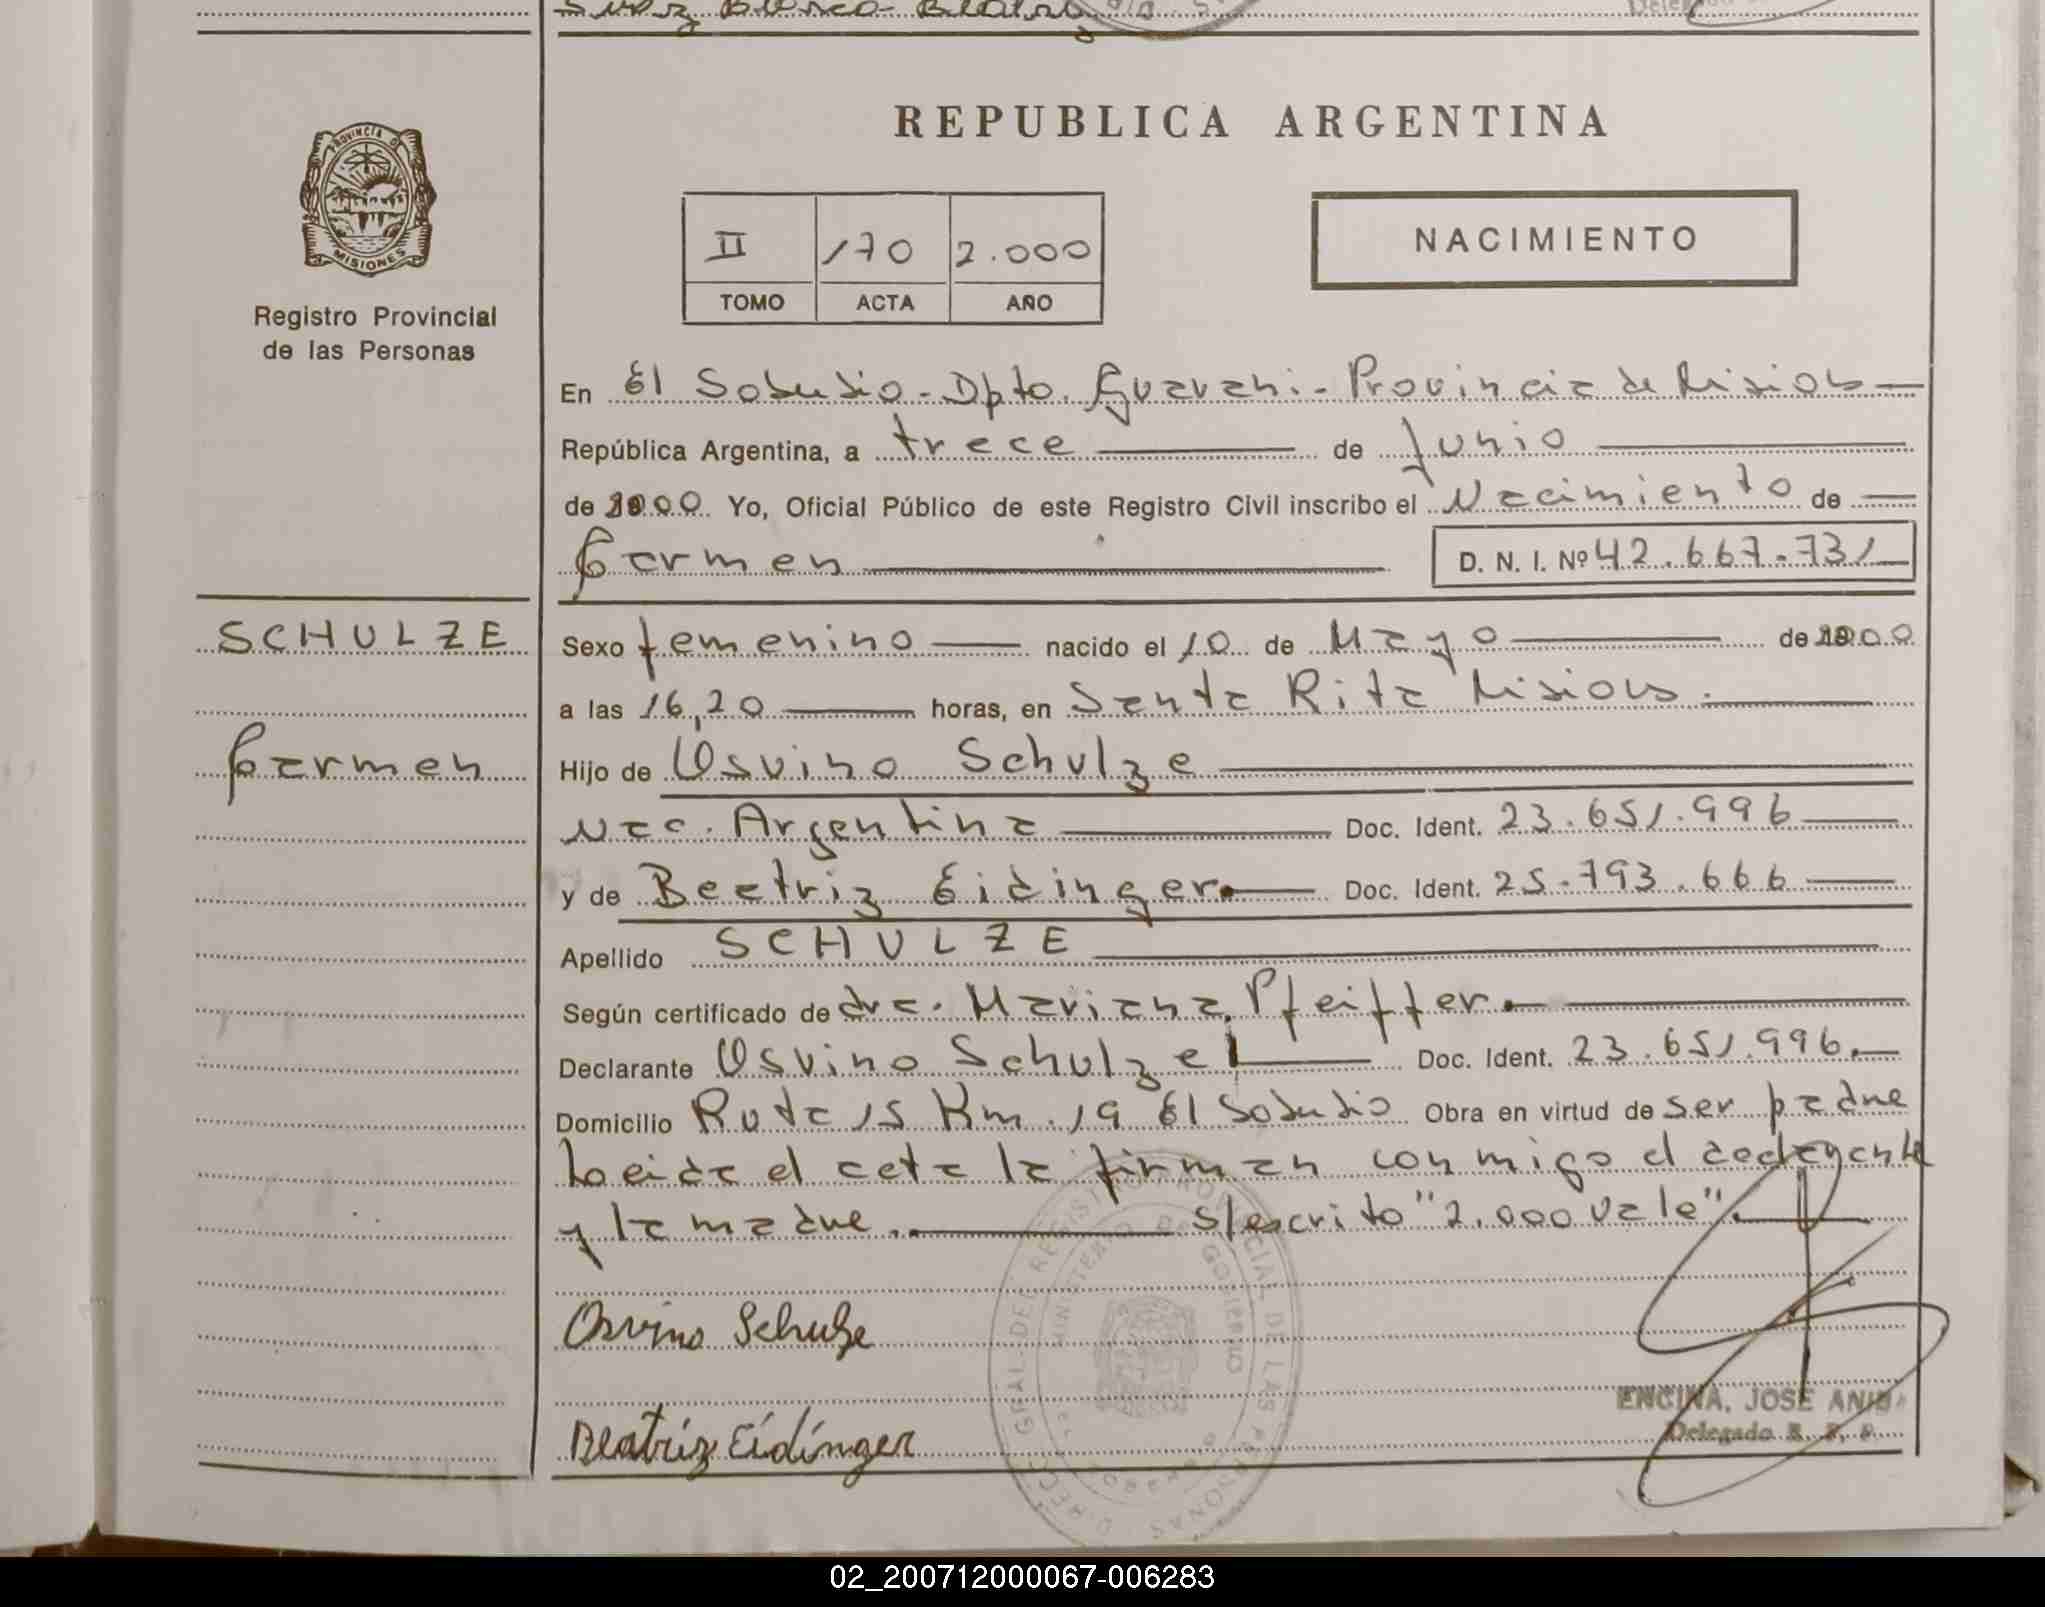 REPUBLICA ARGENTINA
PROVINCIA DE
MISIONES
Registro Provincial
de las Personas
II 170 2.000
TOMO ACTA AÑO
NACIMIENTO
En El Soberbio - Dpto. Guarani - Provincia de Misiones
República Argentina, a trece de Junio
de 2000 Yo, Oficial Público de este Registro Civil inscribo el Nacimiento de
Carmen
D. N. I. Nº 42.667.731
SCHULZE
Carmen
Sexo femenino nacido el 10 de Mayo de 2000
a las 16,20 horas, en Santa Rita Misiones.
Hijo de Osvino Schulze
Nac. Argentina Doc. Ident. 23.651.996
y de Beatriz Eidinger. Doc. Ident. 25.793.666
Apellido SCHULZE
Según certificado de dra. Mariana Pfeiffer.
Declarante Osvino Schulze Doc. Ident. 23.651.996.
Domicilio Ruta 15 Km. 19 El Soberbio Obra en virtud de ser padre
Leida el acta la firman conmigo el declarante
y la madre. s/escrito "2.000 vale".
Osvino Schulze
Beatriz Eidinger
DIRECC. GRAL. DEL REGISTRO PROVINCIAL DE LAS PERSONAS
MINISTERIO DE GOBIERNO
ENCINA, JOSE
Delegado R. P. P.
02_200712000067-006283